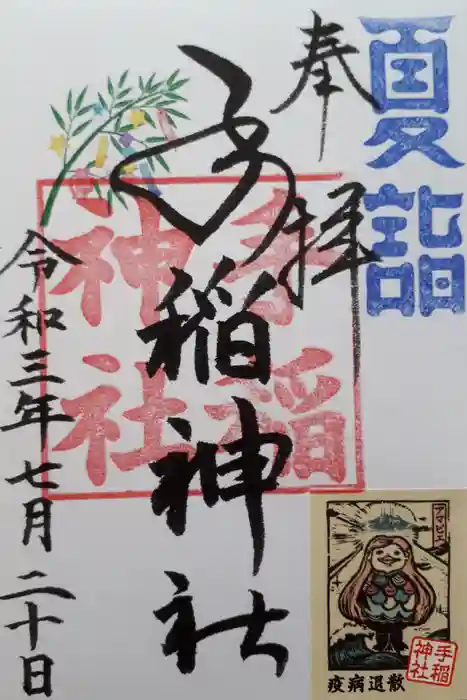 夏詣
奉拝
手稲神社
手稲
神社
令和三年七月二十日
アマビエ
疫病退散
手稲
神社